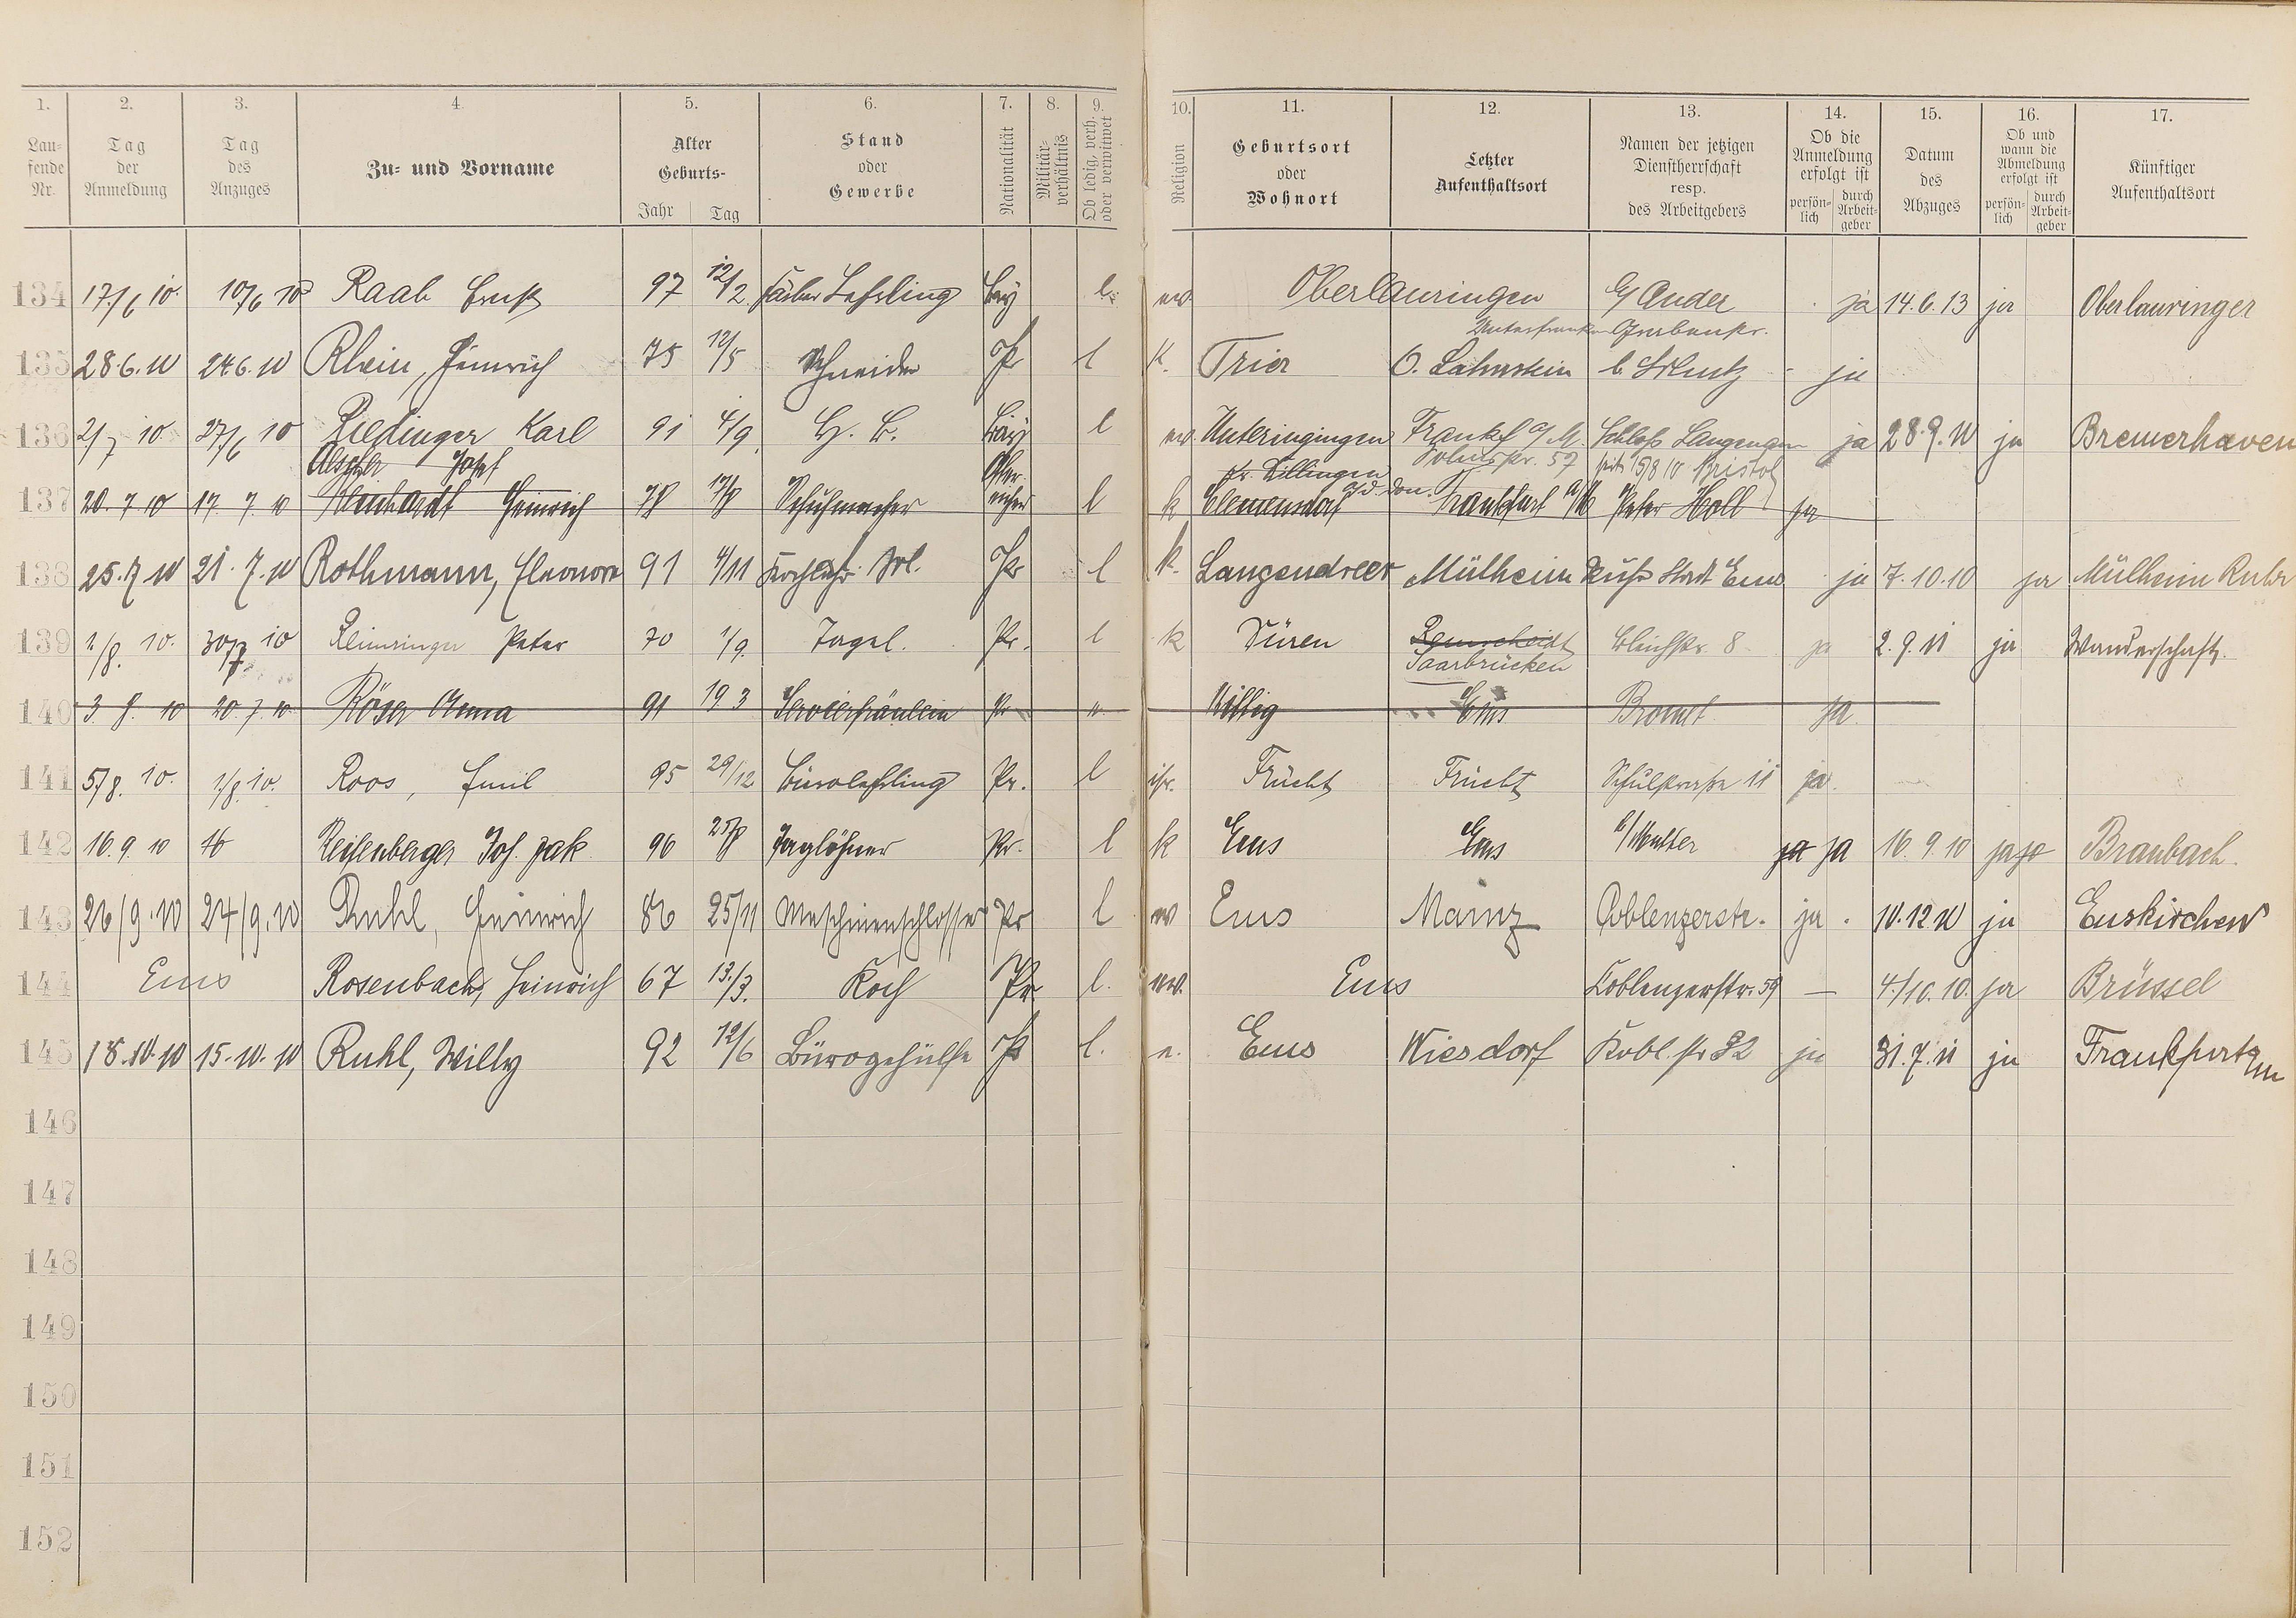 1. 2. 3. 4. 5. 6. 7. 8. 9. 10. 11. 12. 13. 14. 15. 16. 17.
Lau-
fende
Nr.
Tag
der
Anmeldung
Tag
des
Anzuges
Zu- und Vorname
Alter
Geburts-
Jahr Tag
Stand
oder
Gewerbe
Nationalität
Militär-
verhältnis
Ob ledig, verh.
oder verwitwet
Religion
Geburtsort
oder
Wohnort
Letzter
Aufenthaltsort
Namen der jetzigen
Dienstherrschaft
resp.
des Arbeitgebers
Ob die
Anmeldung
erfolgt ist
persön-
lich
durch
Arbeit-
geber
Datum
des
Abzuges
Ob und
wann die
Abmeldung
erfolgt ist
persön-
lich
durch
Arbeit-
geber
Künftiger
Aufenthaltsort
134 17/6 10. 10/6 10 Raab Ernst 97 12/2 Lehrling Bay l. ev Oberlauringen ja 14.6.13 ja Oberlauringen
Unterfranken Grabenstr.
135 28.6.10 24.6.10 Rhein, Heinrich 75 12/5 Schneider Pr l K. Trier O. Lahnstein ja
136 2/7 10. 27/6 10 Riedinger Karl 91 4/9 Bay l ev. Frankf a/M. Schloß Langenau ja 28.9.10 ja Bremerhaven
Kr. Dillingen a/d. Don. 57 seit 15/8 10 Bristol
Josef
137 20.7 10 17.7.10 Heinrich 78 Schuhmacher l k Clemensdorf Frankfurt a/M Peter Holl ja
138 25.7 10 21.7.10 Rothmann, Eleonore 91 4/11 Pr l k. Langendreer Mülheim Ruhr Stadt Ems ja 7.10.10 ja Mülheim Ruhr
139 1/8. 10. 30/7 10 Peter 70 1/9. Tagel. Pr. l k Düren Remscheidt 8 ja 2.9.11 ja Wanderschaft.
Saarbrücken
140 3 8. 10 20.7.10 Röser Anna 91 19 3 Servierfräulein Pr Ems ja
141 5/8. 10. 1/8. 10. Roos, Emil 95 29/12 Bürolehrling Pr. l isr. Frücht Frücht Schulstraße 11 ja.
142 16.9.10 Reifenberger Joh. Jak. 96 25/8 Taglöhner Pr. l k Ems Ems b/Mutter ja ja 16.9.10 ja ja Braubach.
143 26/9.10 24/9.10 Ruhl, Heinrich 86 25/11 Maschinenschlosser Pr l ev Ems Mainz Coblenzerstr. ja. 10.12.10 ja Euskirchen
144 Ems Rosenbach, Heinrich 67 13./3. Koch Pr. l. ev. Ems Koblenzerstr. 59 — 4./10.10. ja Brüssel
145 18.10.10 15.10.10 Ruhl, Willy 92 12/6 Bürogehülfe Pr l. e. Ems Wiesdorf Kobl. str 32 ja 31.7.11 ja Frankfurt am
146
147
148
149
150
151
152